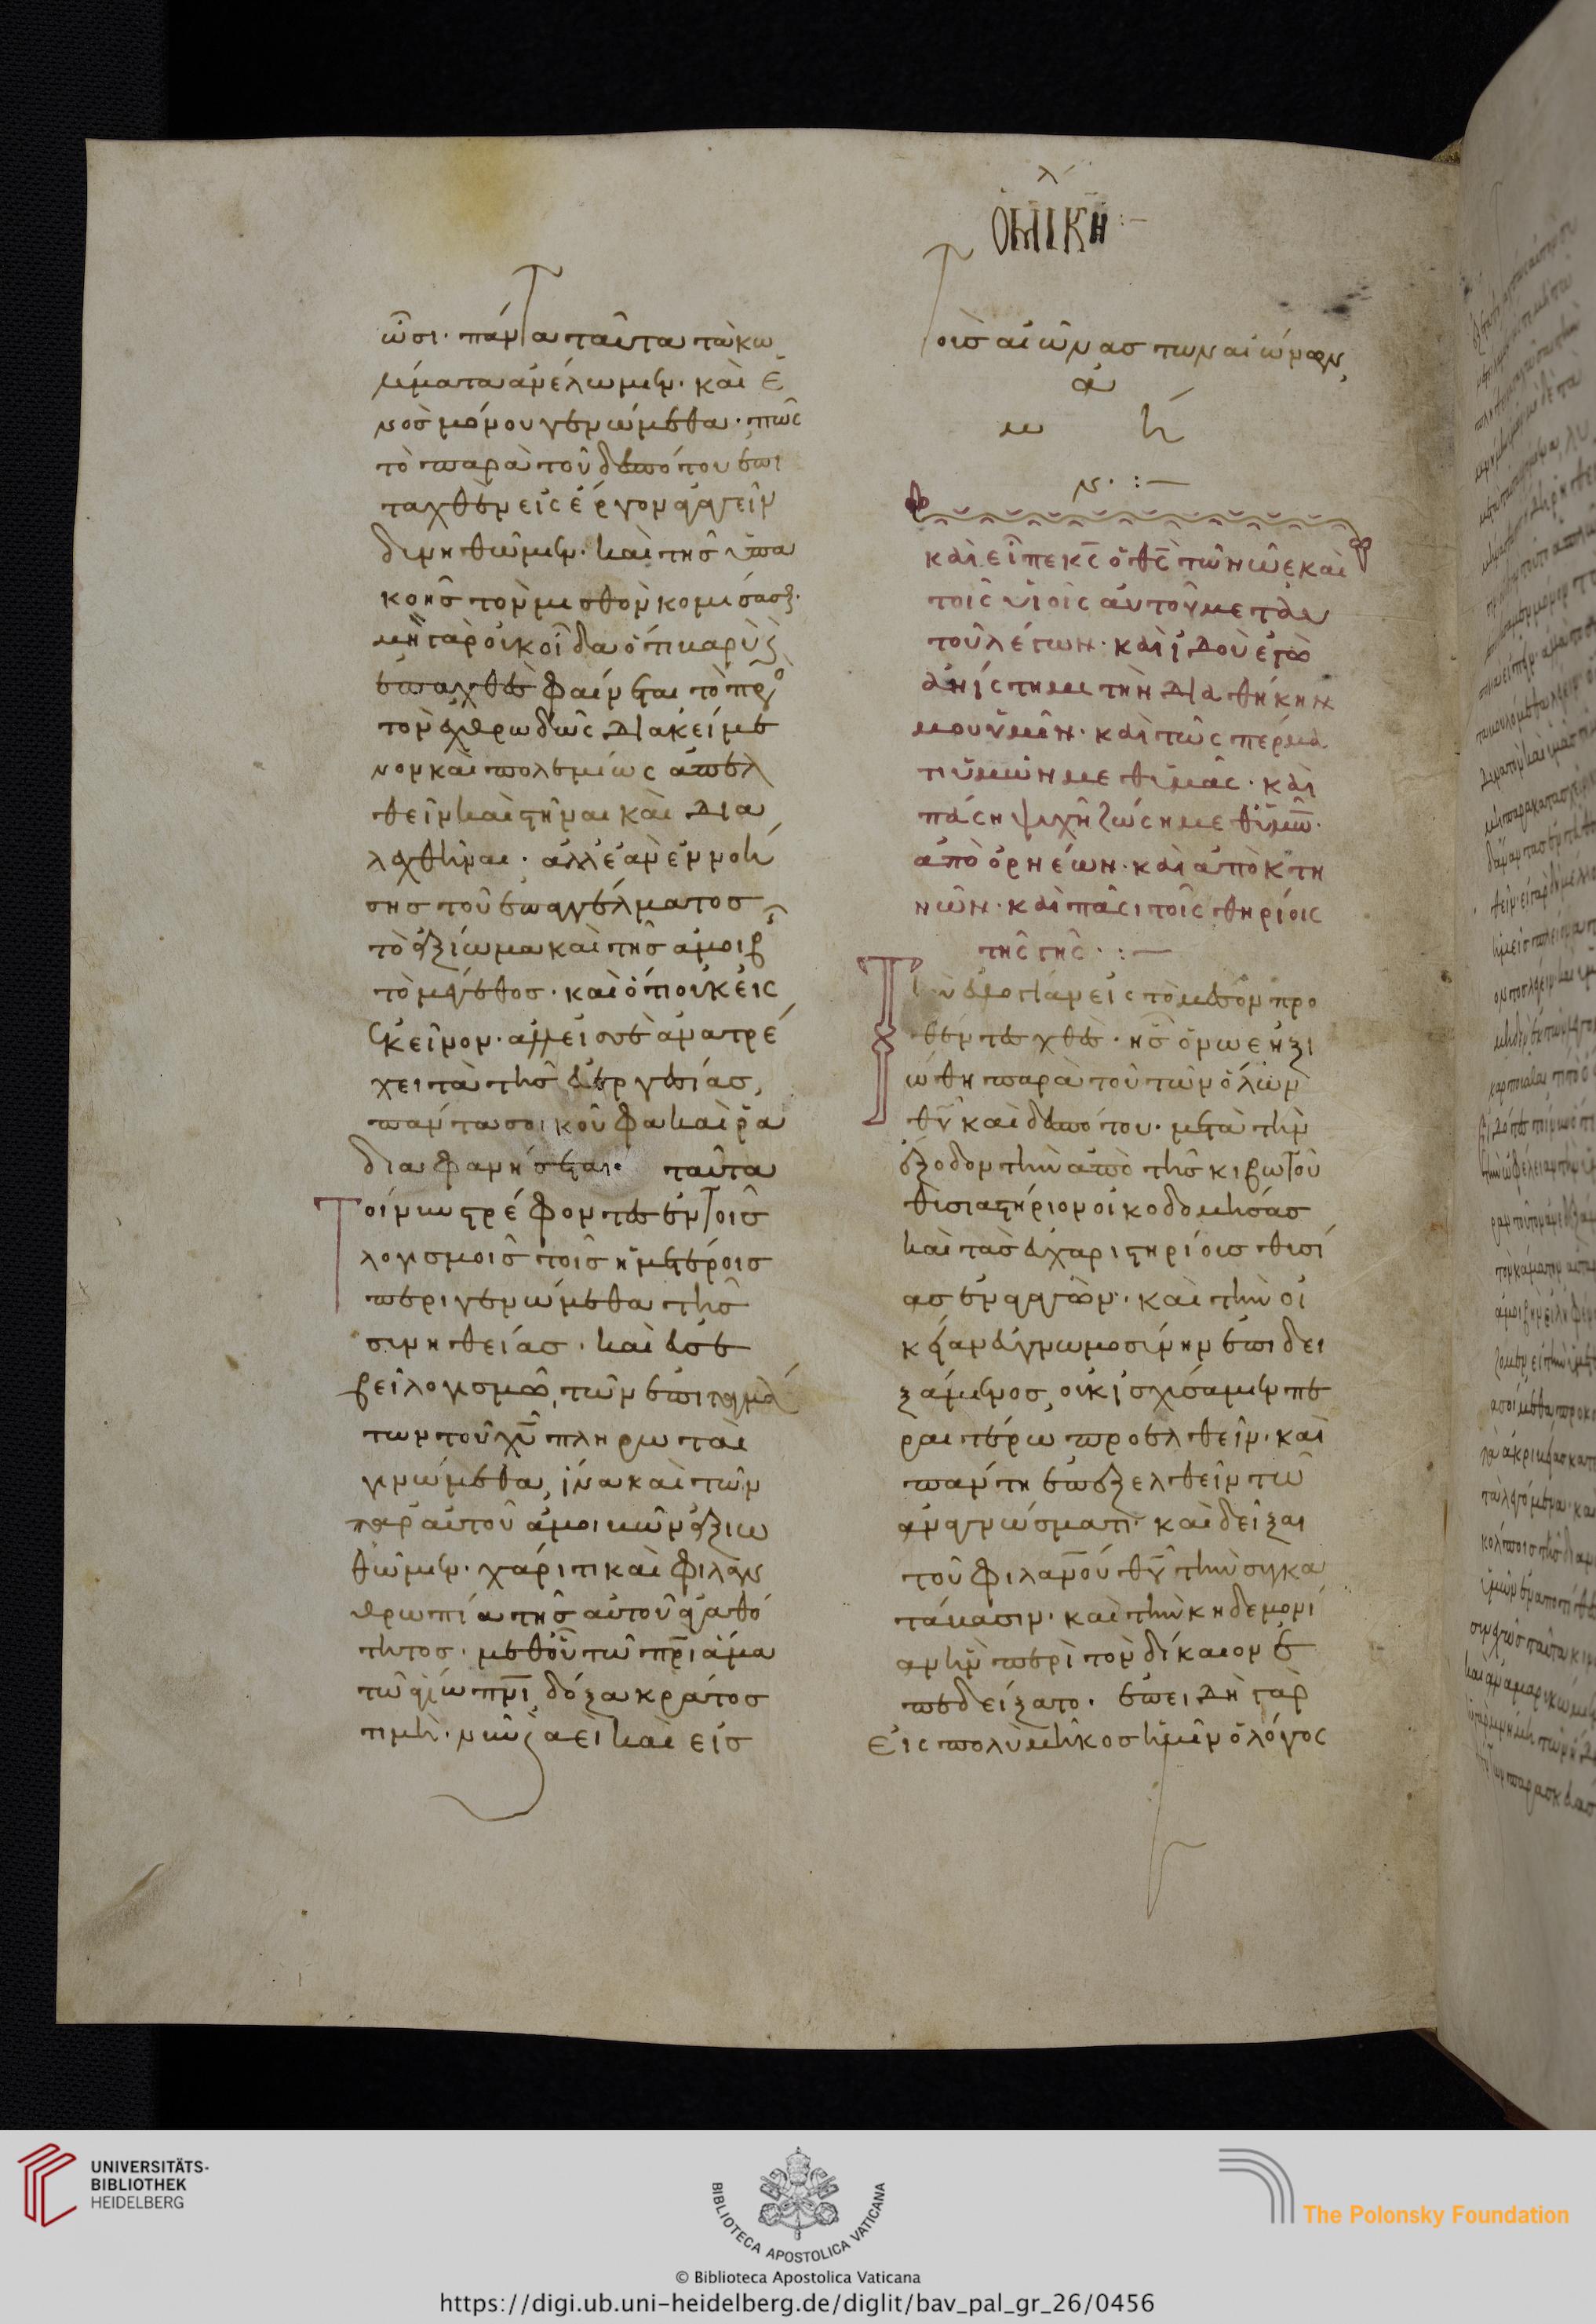 ὁμι̅κη :–
λ´
ῶσι· πάντα ταῦτα τὰ κω
λύματα ἀνέλωμεν· καὶ ἑ
νὸς μόνου γενώμεθα· πῶς
τὸ παρὰ τοῦ δεσπότου ἐπι
ταχθὲν εἰς ἔργον ἀγαγεῖν
δυνηθῶμεν· καὶ τῆς ὑπα
κοῆς τὸν μισθὸν κομίσασθαι·
μὴ γὰρ οὐκ οἶδα ὅτι βαρὺ καὶ
ἐπαχθὲς φαίνεται τὸ πρὸς
τὸν ἐχθρωδῶς διακείμε
νον καὶ πολεμίως ἀπελ
θεῖν καὶ στῆναι καὶ δια
λεχθῆναι· ἀλλ' ἐὰν ἐννοή
σης τοῦ ἐπαγγέλματος
τὸ ἀξίωμα καὶ τῆς ἀμοιβῆς
τὸ μέγεθος· καὶ ὅτι οὐκ εἰς
ἐκεῖνον· ἀλλ' εἰς σὲ ἀνατρέ
χει τὰ τῆς εὐεργεσίας,
πάντα σοι κοῦφα καὶ ῥά
δια φανήσεται· ταῦτα
τοίνυν στρέφοντες ἐν τοῖς
λογισμοῖς τοῖς ἡμετέροις
περιγενώμεθα τῆς
συνηθείας· καὶ εὐσε
βεῖ λογισμῷ, τῶν ἐπιταγμά
των τοῦ χυ̅ πληρωταὶ
γινώμεθα, ἵνα καὶ τῶν
παρ' αὐτοῦ ἀμοιβῶν ἀξιω
θῶμεν· χάριτι καὶ φιλαν
θρωπία τῆς αὐτοῦ ἀγαθό
τητος· μεθ' οὗ τῶ πρι̅ ἅμα
τῶ ἁγίω πνι̅ δόξα κράτος
τιμή· νῦν καὶ ἀεὶ καὶ εἰς
τοὺς αἰῶνας τῶν αἰώνων,
ἀ
μ ή
ν· :–
καὶ εἶπε κς̅ ὁ θς̅ τῶ νῶε καὶ
τοῖς υἱοῖς αὐτοῦ μετ' αυ
τοῦ λέγων· καὶ ἰδοὺ ἐγὼ
ἀνίστημι τὴν διαθήκην
μου ὑμῖν· καὶ τῶ σπέρμα
τι ὑμῶν μεθ' ὑμᾶς· καὶ
πάση ψυχῆ ζώση μεθ' ὑμῶν·
ἀπὸ ὀρνέων· καὶ ἀπὸ κτη
νῶν· καὶ πᾶσι τοῖς θηρίοις
τῆς γῆς· :–
Τὴν εὐλογίαν εἰς τὸ μέσον προ
θέντες χθὲς· ἧς ὁ νῶε ἠξι
ώθη παρὰ τοῦ τῶν ὅλων
θυ̅ καὶ δεσπότου· μετὰ τὴν
ἔξοδον τὴν ἀπὸ τῆς κιβωτοῦ
θυσιαστήριον οἰκοδομήσας
καὶ τὰς εὐχαριστηρίους θυσί
ας ἐναγαγών· καὶ τὴν οἰ
κείαν εὐγνωμοσύνην ἐπιδει
ξάμενος, οὐκ ἰσχύσαμεν πε
ραιτέρω προσελθεῖν· καὶ
πάντη ἐπεξελθεῖν τῶ
ἀναγνώσματι· καὶ δεῖξαι
τοῦ φιλαν̅ου θυ̅ τὴν συγκα
τάβασιν· καὶ τὴν κηδεμονί
αν ἣν περὶ τὸν δίκαιον ἐ
πεδείξατο· ἐπειδὴ γὰρ
εἰς πολὺ μῆκος ἡμῖν ὁ λόγος
UNIVERSITÄTS-
BIBLIOTHEK
HEIDELBERG
BIBLIOTECA APOSTOLICA VATICANA
The Polonsky Foundation
© Biblioteca Apostolica Vaticana
https://digi.ub.uni-heidelberg.de/diglit/bav_pal_gr_26/0456